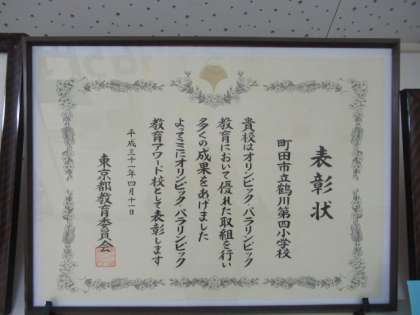 表彰状
町田市立鶴川第四小学校
貴校はオリンピック・パラリンピック
教育において優れた取組を行い
多くの成果をあげました
よってここにオリンピック・パラリンピック
教育アワード校として表彰します
平成三十一年四月十一日
東京都教育委員会